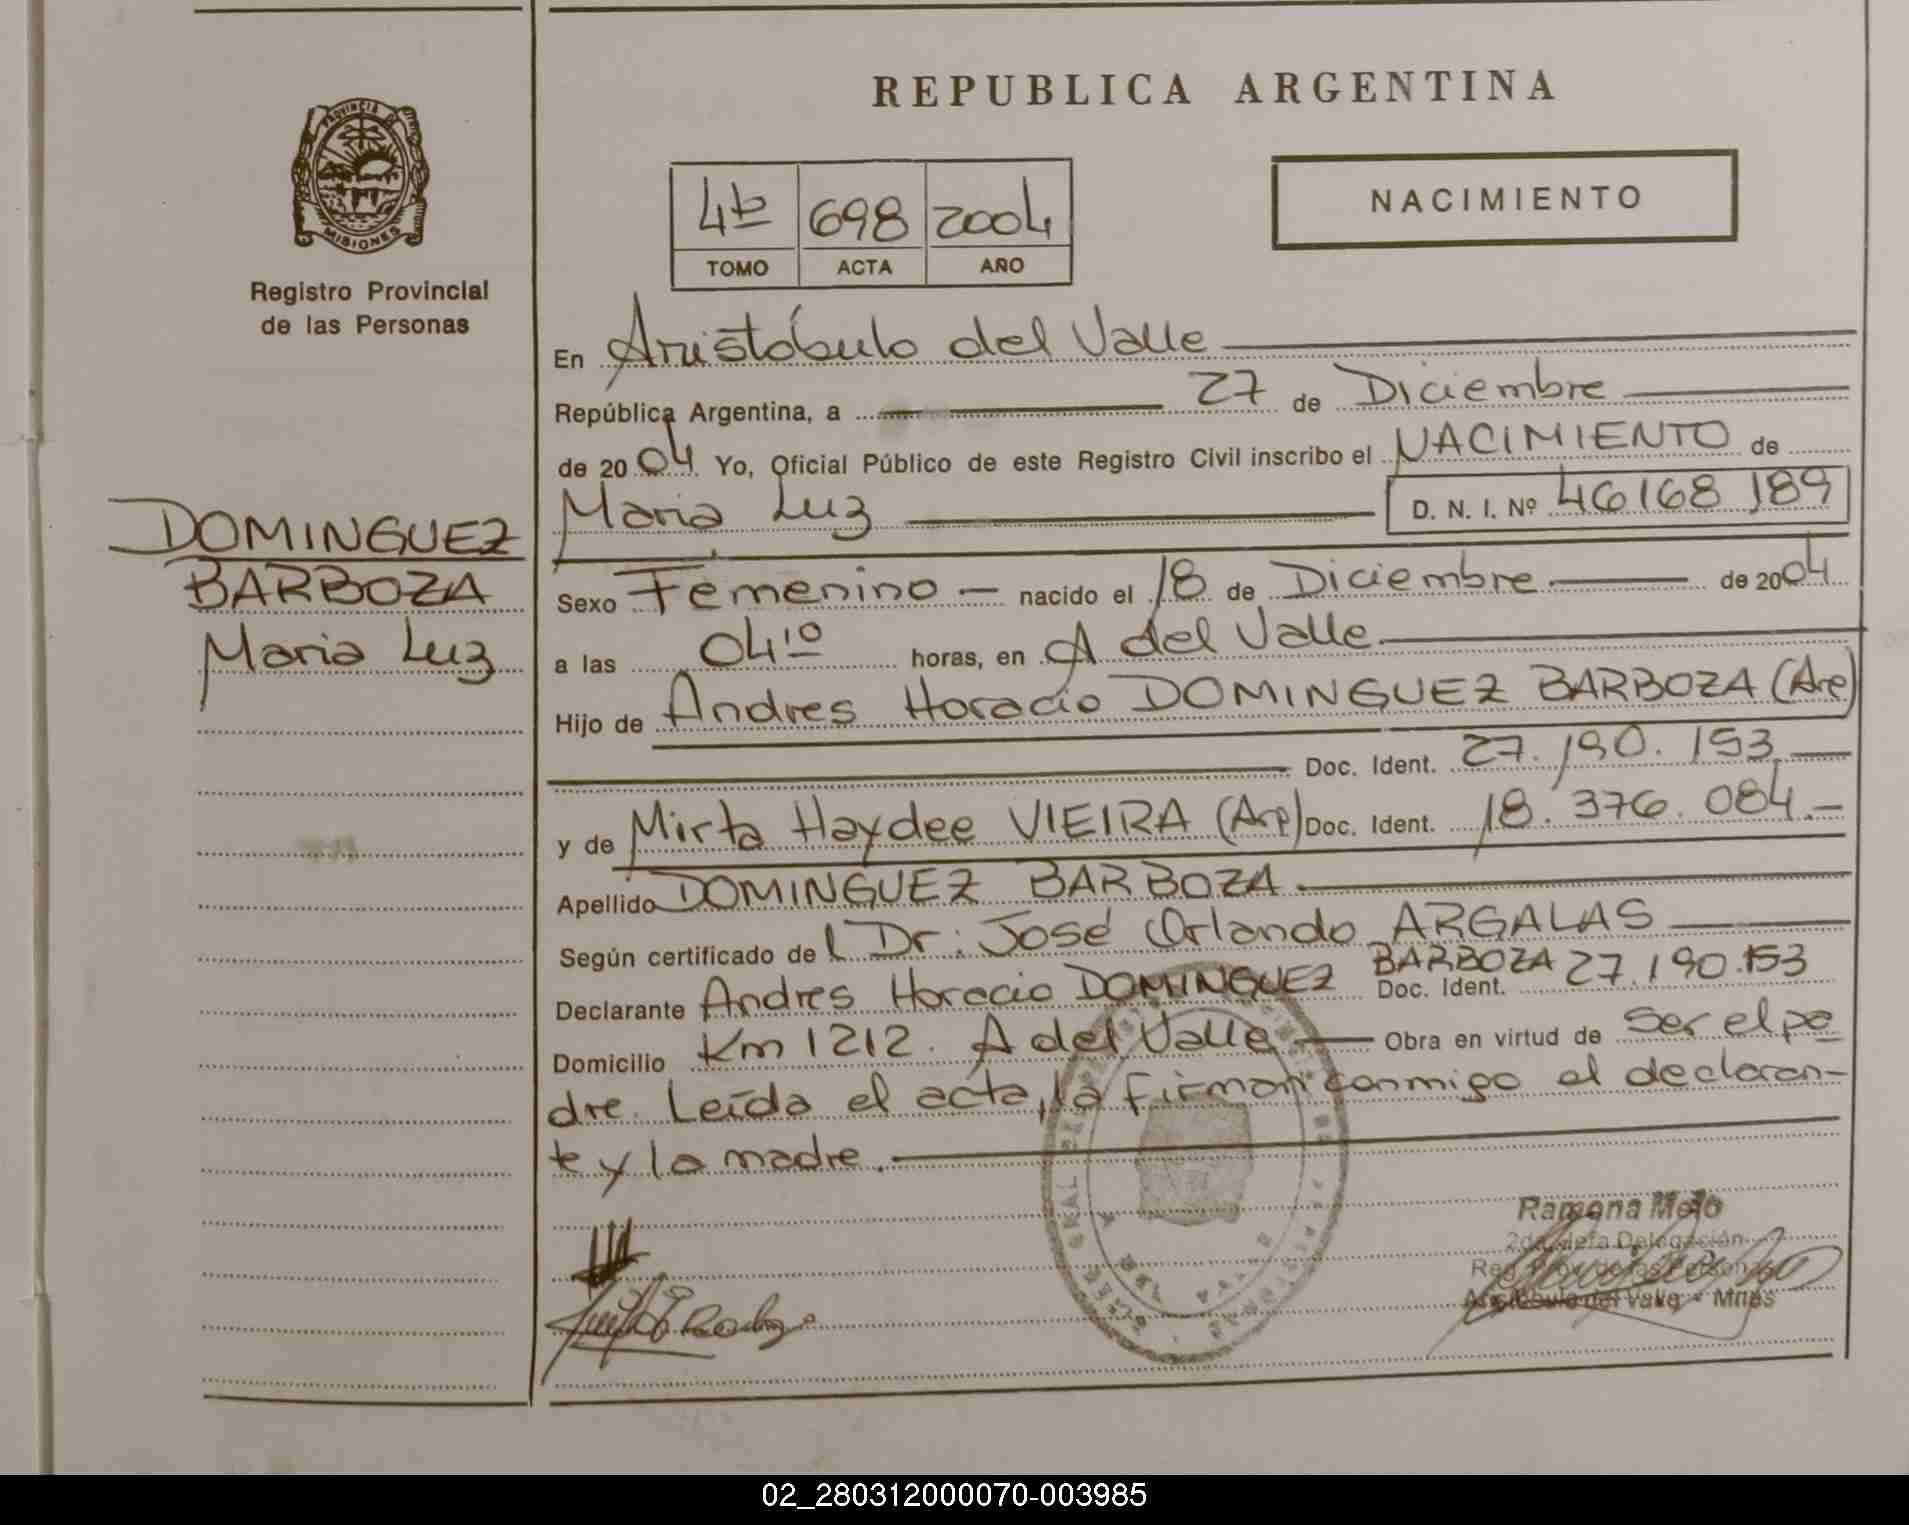 REPUBLICA ARGENTINA
PROVINCIA DE
MISIONES
Registro Provincial
de las Personas
4to 698 2004
TOMO ACTA AÑO
NACIMIENTO
DOMINGUEZ
BARBOZA
Maria Luz
En Aristóbulo del Valle
República Argentina, a 27 de Diciembre
de 2004 Yo, Oficial Público de este Registro Civil inscribo el NACIMIENTO de
Maria Luz D. N. I. Nº 46168189
Sexo Femenino nacido el 18 de Diciembre de 2004
a las 04:10 horas, en A del Valle
Hijo de Andres Horacio DOMINGUEZ BARBOZA (Arg)
Doc. Ident. 27.190.153
y de Mirta Haydee VIEIRA (Arg) Doc. Ident. 18.376.084.-
Apellido DOMINGUEZ BARBOZA
Según certificado del Dr: José Orlando ARGALAS
Declarante Andres Horacio DOMINGUEZ BARBOZA Doc. Ident. 27.190.153
Domicilio Km 1212. A del Valle Obra en virtud de ser el pa
dre. Leída el acta, la firman conmigo el declaran-
te y la madre.
Ramona Melo
2da. Jefa Delegación
Reg. Prov. de las Personas
Aristóbulo del Valle - Mnes
02_280312000070-003985